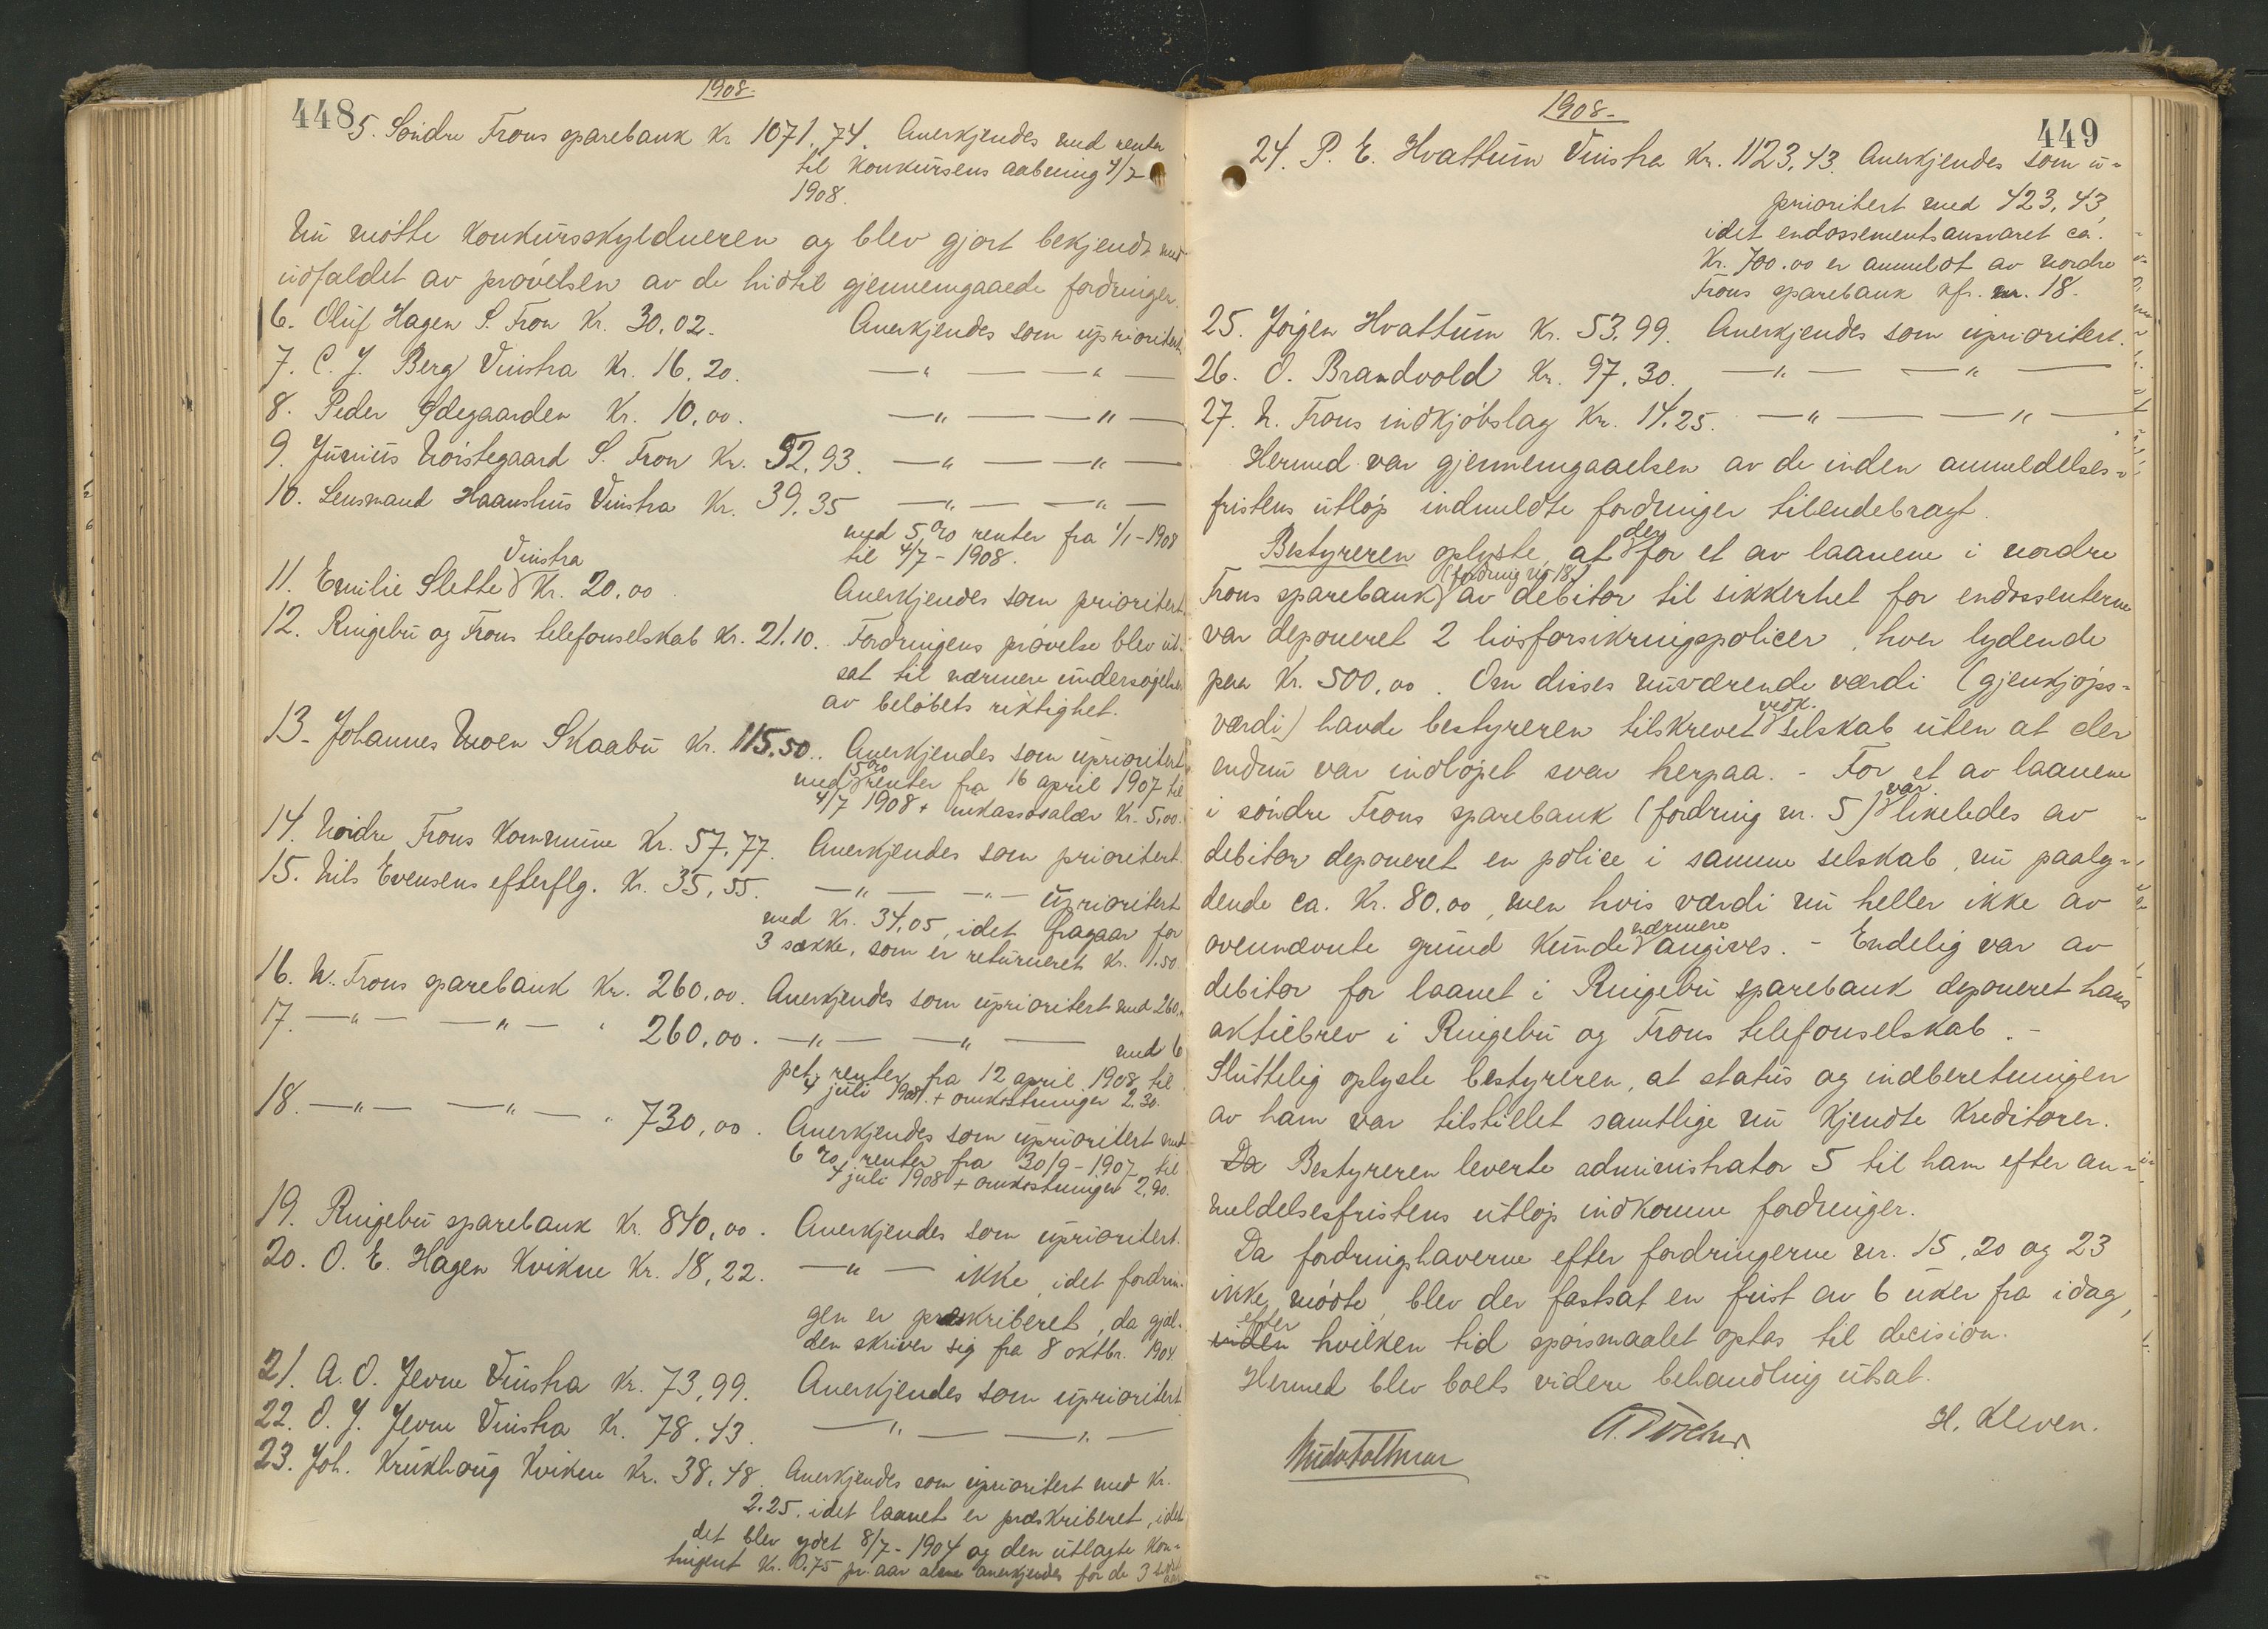 448
1908.
5. Søndre Frons sparebank Kr. 1071,74. Anerkjendes med renter
til Konkursens aabning 4/7
1908.
Nu møtte Konkursskyldneren og blev gjort bekjendt med
udfaldet av prøvelsen av de hidtil gjennemgaaede fordringer.
6. Oluf Hagen S. Fron Kr. 30.02. Anerkjendes som uprioritert
7. C. J. Berg Vinstra Kr. 16.20. —"— —"—
8. Peder Ødegaarden Kr. 10.00. —"— —"—
9. Junius Nørstegaard S. Fron Kr. 52,93. —"— —"—
10. Lensmand Haanshus Vinstra Kr. 39.35 —"— —"—
med 5 % renter fra 1/1-1908
til 4/7-1908.
11. Emilie Slette Vinstra Kr. 20.00. Anerkjendes som prioritert
12. Ringebu og Frons telefonselskab Kr. 21.10. Fordringens prøvelse blev ut-
sat til nærmere undersøgelse
av beløbets riktighet.
13. Johannes Moen Skaabu Kr. 115.50. Anerkjendes som uprioritert
med 5 % renter fra 16 april 1907 til
4/7 1908 + inkassosalær Kr. 5,00.
14. Nordre Frons Kommune Kr. 57,77. Anerkjendes som prioritert.
15. Nils Evensens efterflg. Kr. 35,55. —"— —"— uprioritert
med Kr. 34,05, idet fragaar for
3 sække, som er returneret Kr. 1.50.
16. N. Frons sparebank Kr. 260,00. Anerkjendes som uprioritert med 260,00
17. —"— —"— " 260,00. —"— —"— med 6
pct. renter fra 12 april 1908 til
4 juli 1908. + omkostninger 2.30.
18. —"— —"— " 730,00. Anerkjendes som uprioritert med
6 % renter fra 30/9-1907 til
4 juli 1908 + omkostninger 2,90.
19. Ringebu sparebank Kr. 840,00. Anerkjendes som uprioritert.
20. O. E. Hagen Kvikne Kr. 18,22. —"— ikke, idet fordrin-
gen er præskriberet, da gjæl-
den skriver sig fra 8 oktbr. 1904.
21. A. O. Jevne Vinstra Kr. 73,99. Anerkjendes som uprioritert
22. O. J. Jevne Vinstra Kr. 78.43. —"— —"—
23. Joh. Krukhaug Kvikne Kr. 38,48. Anerkjendes som uprioritert med Kr.
2.25. idet laanet er præskriberet, idet
det blev ydet 8/7-1904 og den utlagte Kon-
tingent Kr. 0.75 pr. aar alene anerkjendes for de 3 sidste aar
1908.
449
24. P. E. Hvattum Vinstra Kr. 1123,43. Anerkjendes som u-
prioritert med 423,43,
idet endossementsansvaret ca.
Kr. 700.00 er anmeldt av nordre
Frons sparebank kfr. nr. 18.
25. Jørgen Hvattum Kr. 53,99. Anerkjendes som uprioritert.
26. O. Brandvold Kr. 97.30. —"— —"—
27. N. Frons indkjøbslag Kr. 14.25. —"— —"—
Hermed var gjennemgaaelsen av de inden anmeldelses-
fristens utløp indmeldte fordringer tilendebragt.
Bestyreren oplyste, at der for et av laanene i nordre
Frons sparebank (fordring nr. 18) av debitor til sikkerhet for endossenterne
var deponeret 2 livsforsikringspolicer, hver lydende
paa Kr. 500,00. Om disses nuværende værdi (gjenkjøps-
værdi) havde bestyreren tilskrevet vedk. selskab uten at der
endnu var indløpet svar herpaa. - For et av laanene
i søndre Frons sparebank (fordring nr. 5) var likeledes av
debitor deponeret en police i samme selskab, nu paaly-
dende ca. Kr. 80.00, men hvis værdi nu heller ikke av
ovennævnte grund kunde nærmere angives. - Endelig var av
debitor for laanet i Ringebu sparebank deponeret hans
aktiebrev i Ringebu og Frons telefonselskab. -
Sluttelig oplyste bestyreren, at status og indberetningen
av ham var tilstillet samtlige nu kjendte kreditorer.
Da Bestyreren leverte administrator 5 til ham efter an-
meldelsesfristens utløp indkomne fordringer.
Da fordringshaverne efter fordringerne nr. 15, 20 og 23
ikke mødte, blev der fastsat en frist av 6 uker fra idag,
inden efter hvilken tid spørsmaalet optas til decision.
Hermed blev boets videre behandling utsat.
H. Kleven.